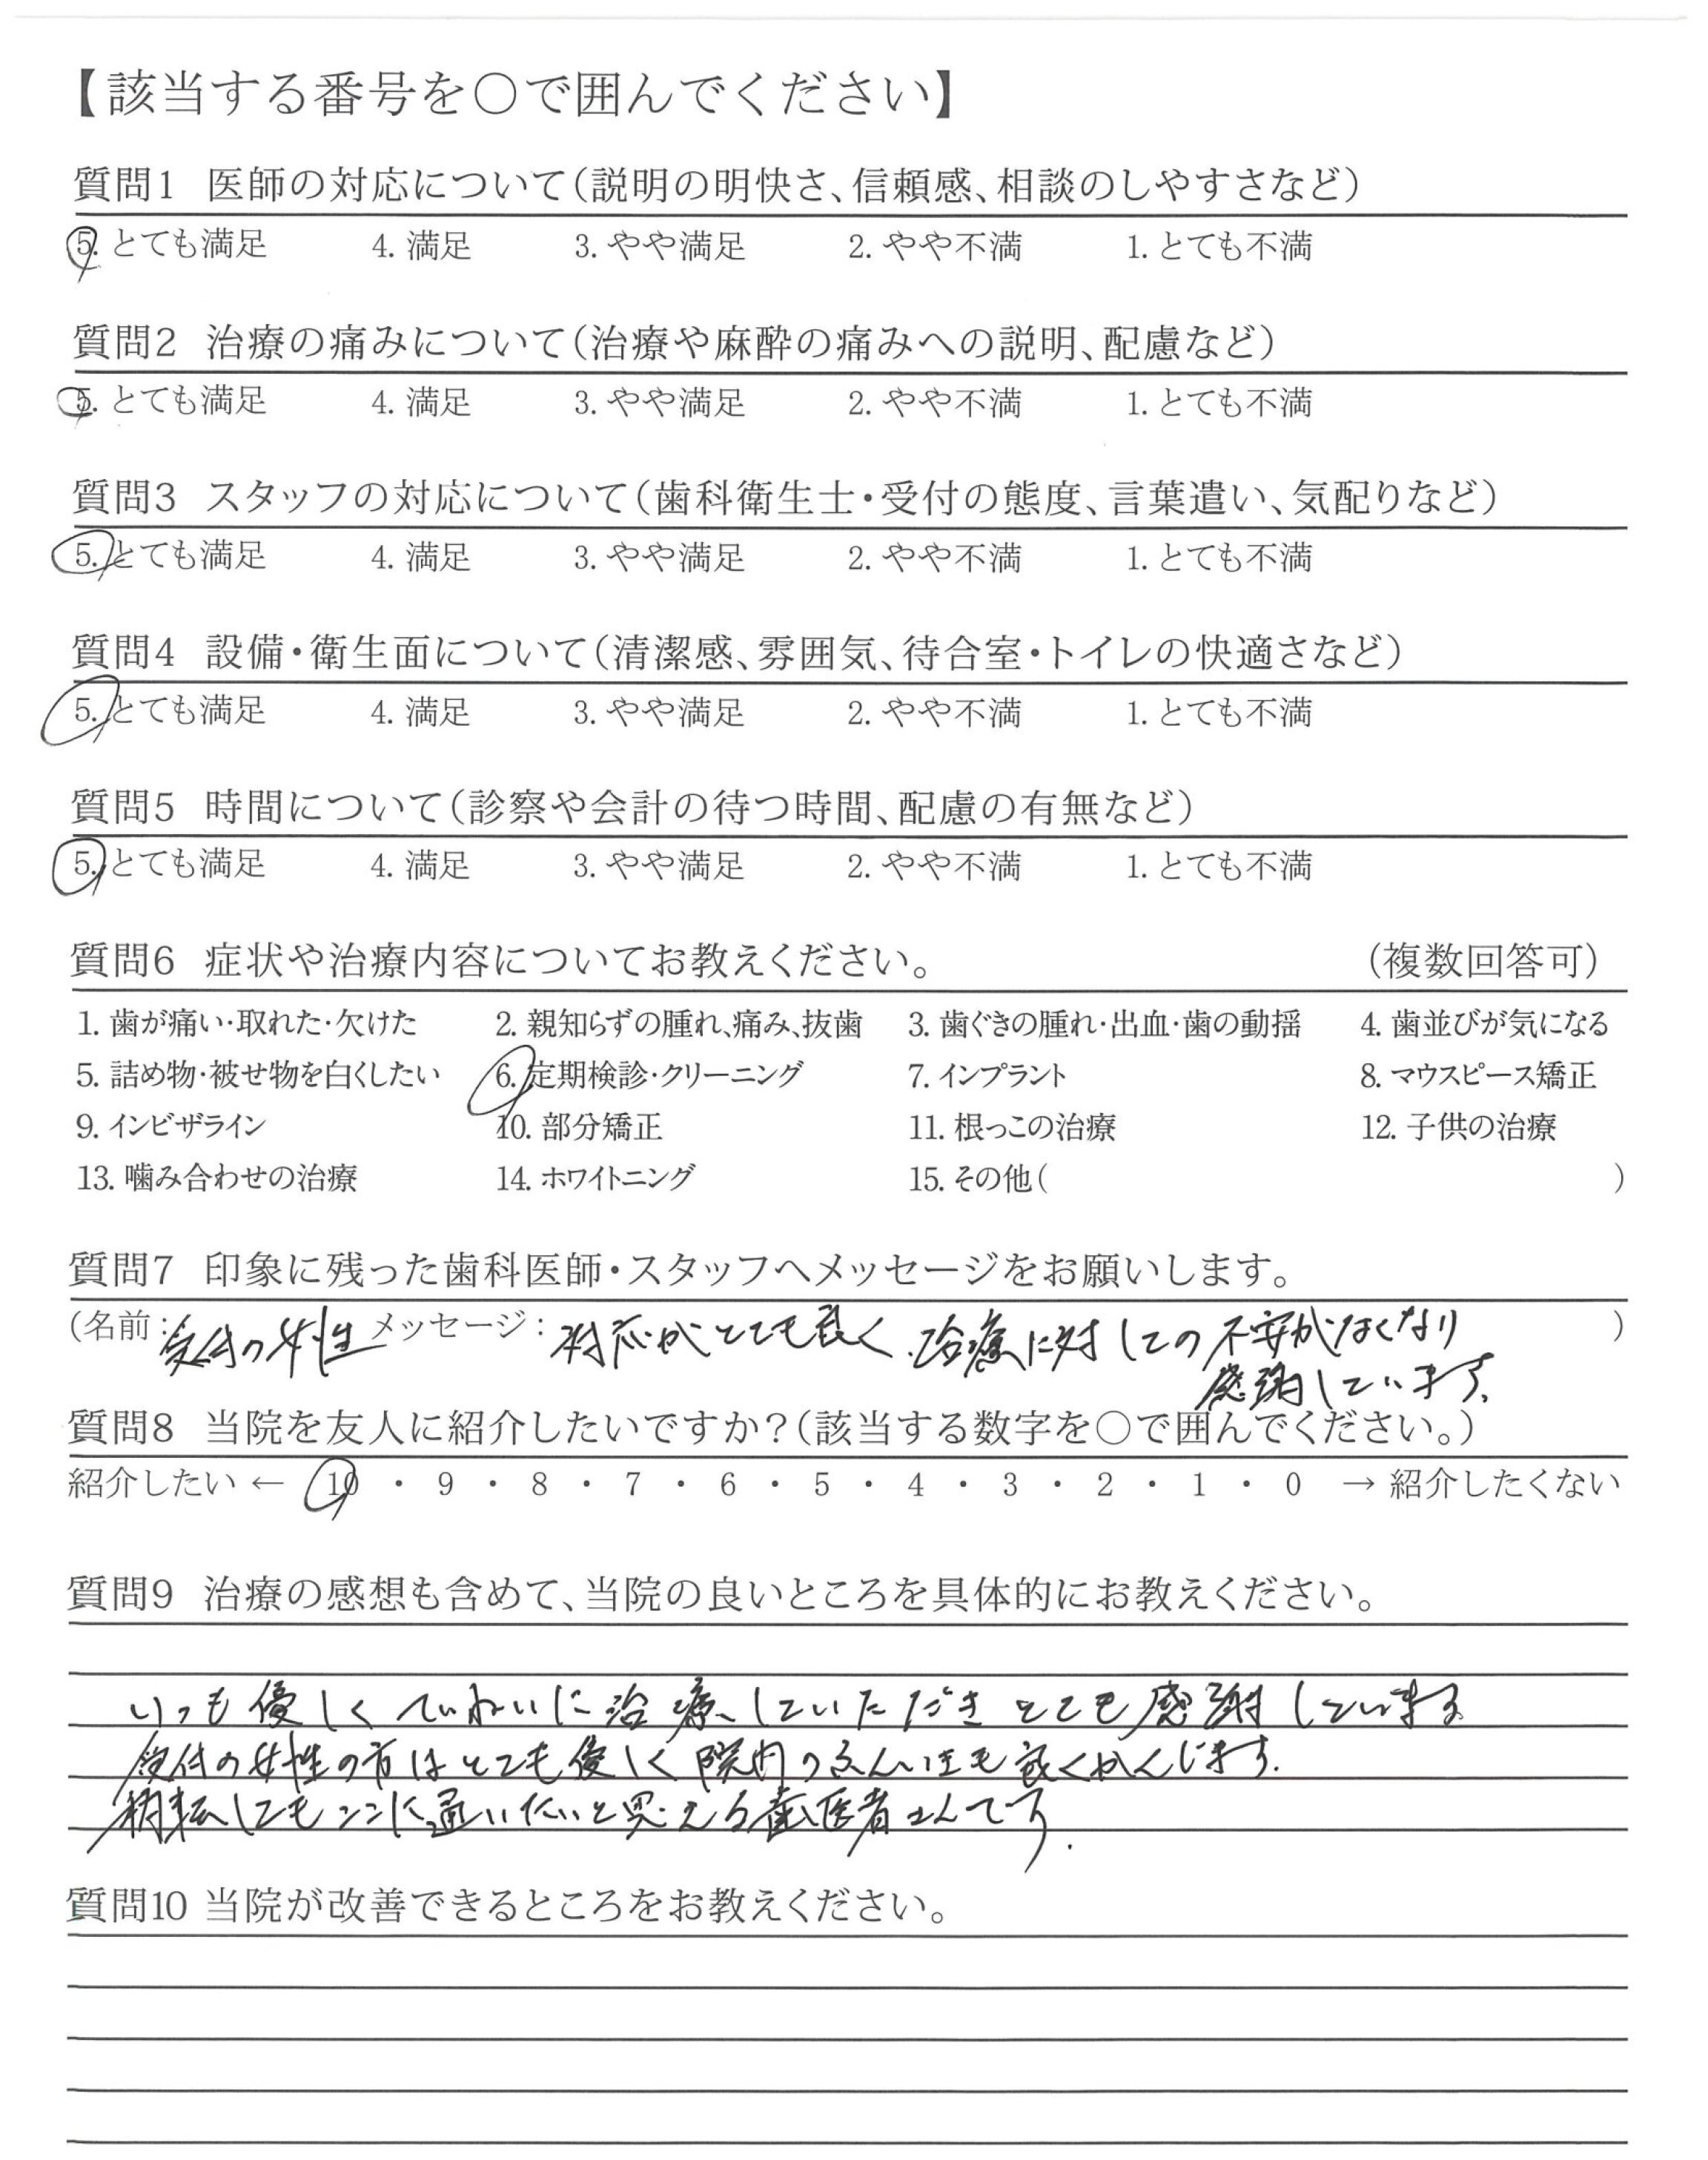 【該当する番号を○で囲んでください】
質問1 医師の対応について(説明の明快さ、信頼感、相談のしやすさなど)
5. とても満足 4. 満足 3. やや満足 2. やや不満 1. とても不満
質問2 治療の痛みについて(治療や麻酔の痛みへの説明、配慮など)
5. とても満足 4. 満足 3. やや満足 2. やや不満 1. とても不満
質問3 スタッフの対応について(歯科衛生士・受付の態度、言葉遣い、気配りなど)
5. とても満足 4. 満足 3. やや満足 2. やや不満 1. とても不満
質問4 設備・衛生面について(清潔感、雰囲気、待合室・トイレの快適さなど)
5. とても満足 4. 満足 3. やや満足 2. やや不満 1. とても不満
質問5 時間について(診察や会計の待つ時間、配慮の有無など)
5. とても満足 4. 満足 3. やや満足 2. やや不満 1. とても不満
質問6 症状や治療内容についてお教えください。 (複数回答可)
1. 歯が痛い・取れた・欠けた 2. 親知らずの腫れ、痛み、抜歯 3. 歯ぐきの腫れ・出血・歯の動揺 4. 歯並びが気になる
5. 詰め物・被せ物を白くしたい 6. 定期検診・クリーニング 7. インプラント 8. マウスピース矯正
9. インビザライン 10. 部分矯正 11. 根っこの治療 12. 子供の治療
13. 噛み合わせの治療 14. ホワイトニング 15. その他( )
質問7 印象に残った歯科医師・スタッフへメッセージをお願いします。
(名前: 受付の女性 メッセージ: 対応がとても良く、治療に対しての不安がなくなり )
感謝しています。
質問8 当院を友人に紹介したいですか?(該当する数字を○で囲んでください。)
紹介したい ← 10 ・ 9 ・ 8 ・ 7 ・ 6 ・ 5 ・ 4 ・ 3 ・ 2 ・ 1 ・ 0 → 紹介したくない
質問9 治療の感想も含めて、当院の良いところを具体的にお教えください。
いつも優しくていねいに治療していただきとても感謝しています
受付の女性の方はとても優しく院内のふんいきも良くかんじます。
転してもココに通いたいと思える歯医者さんです.
質問10 当院が改善できるところをお教えください。